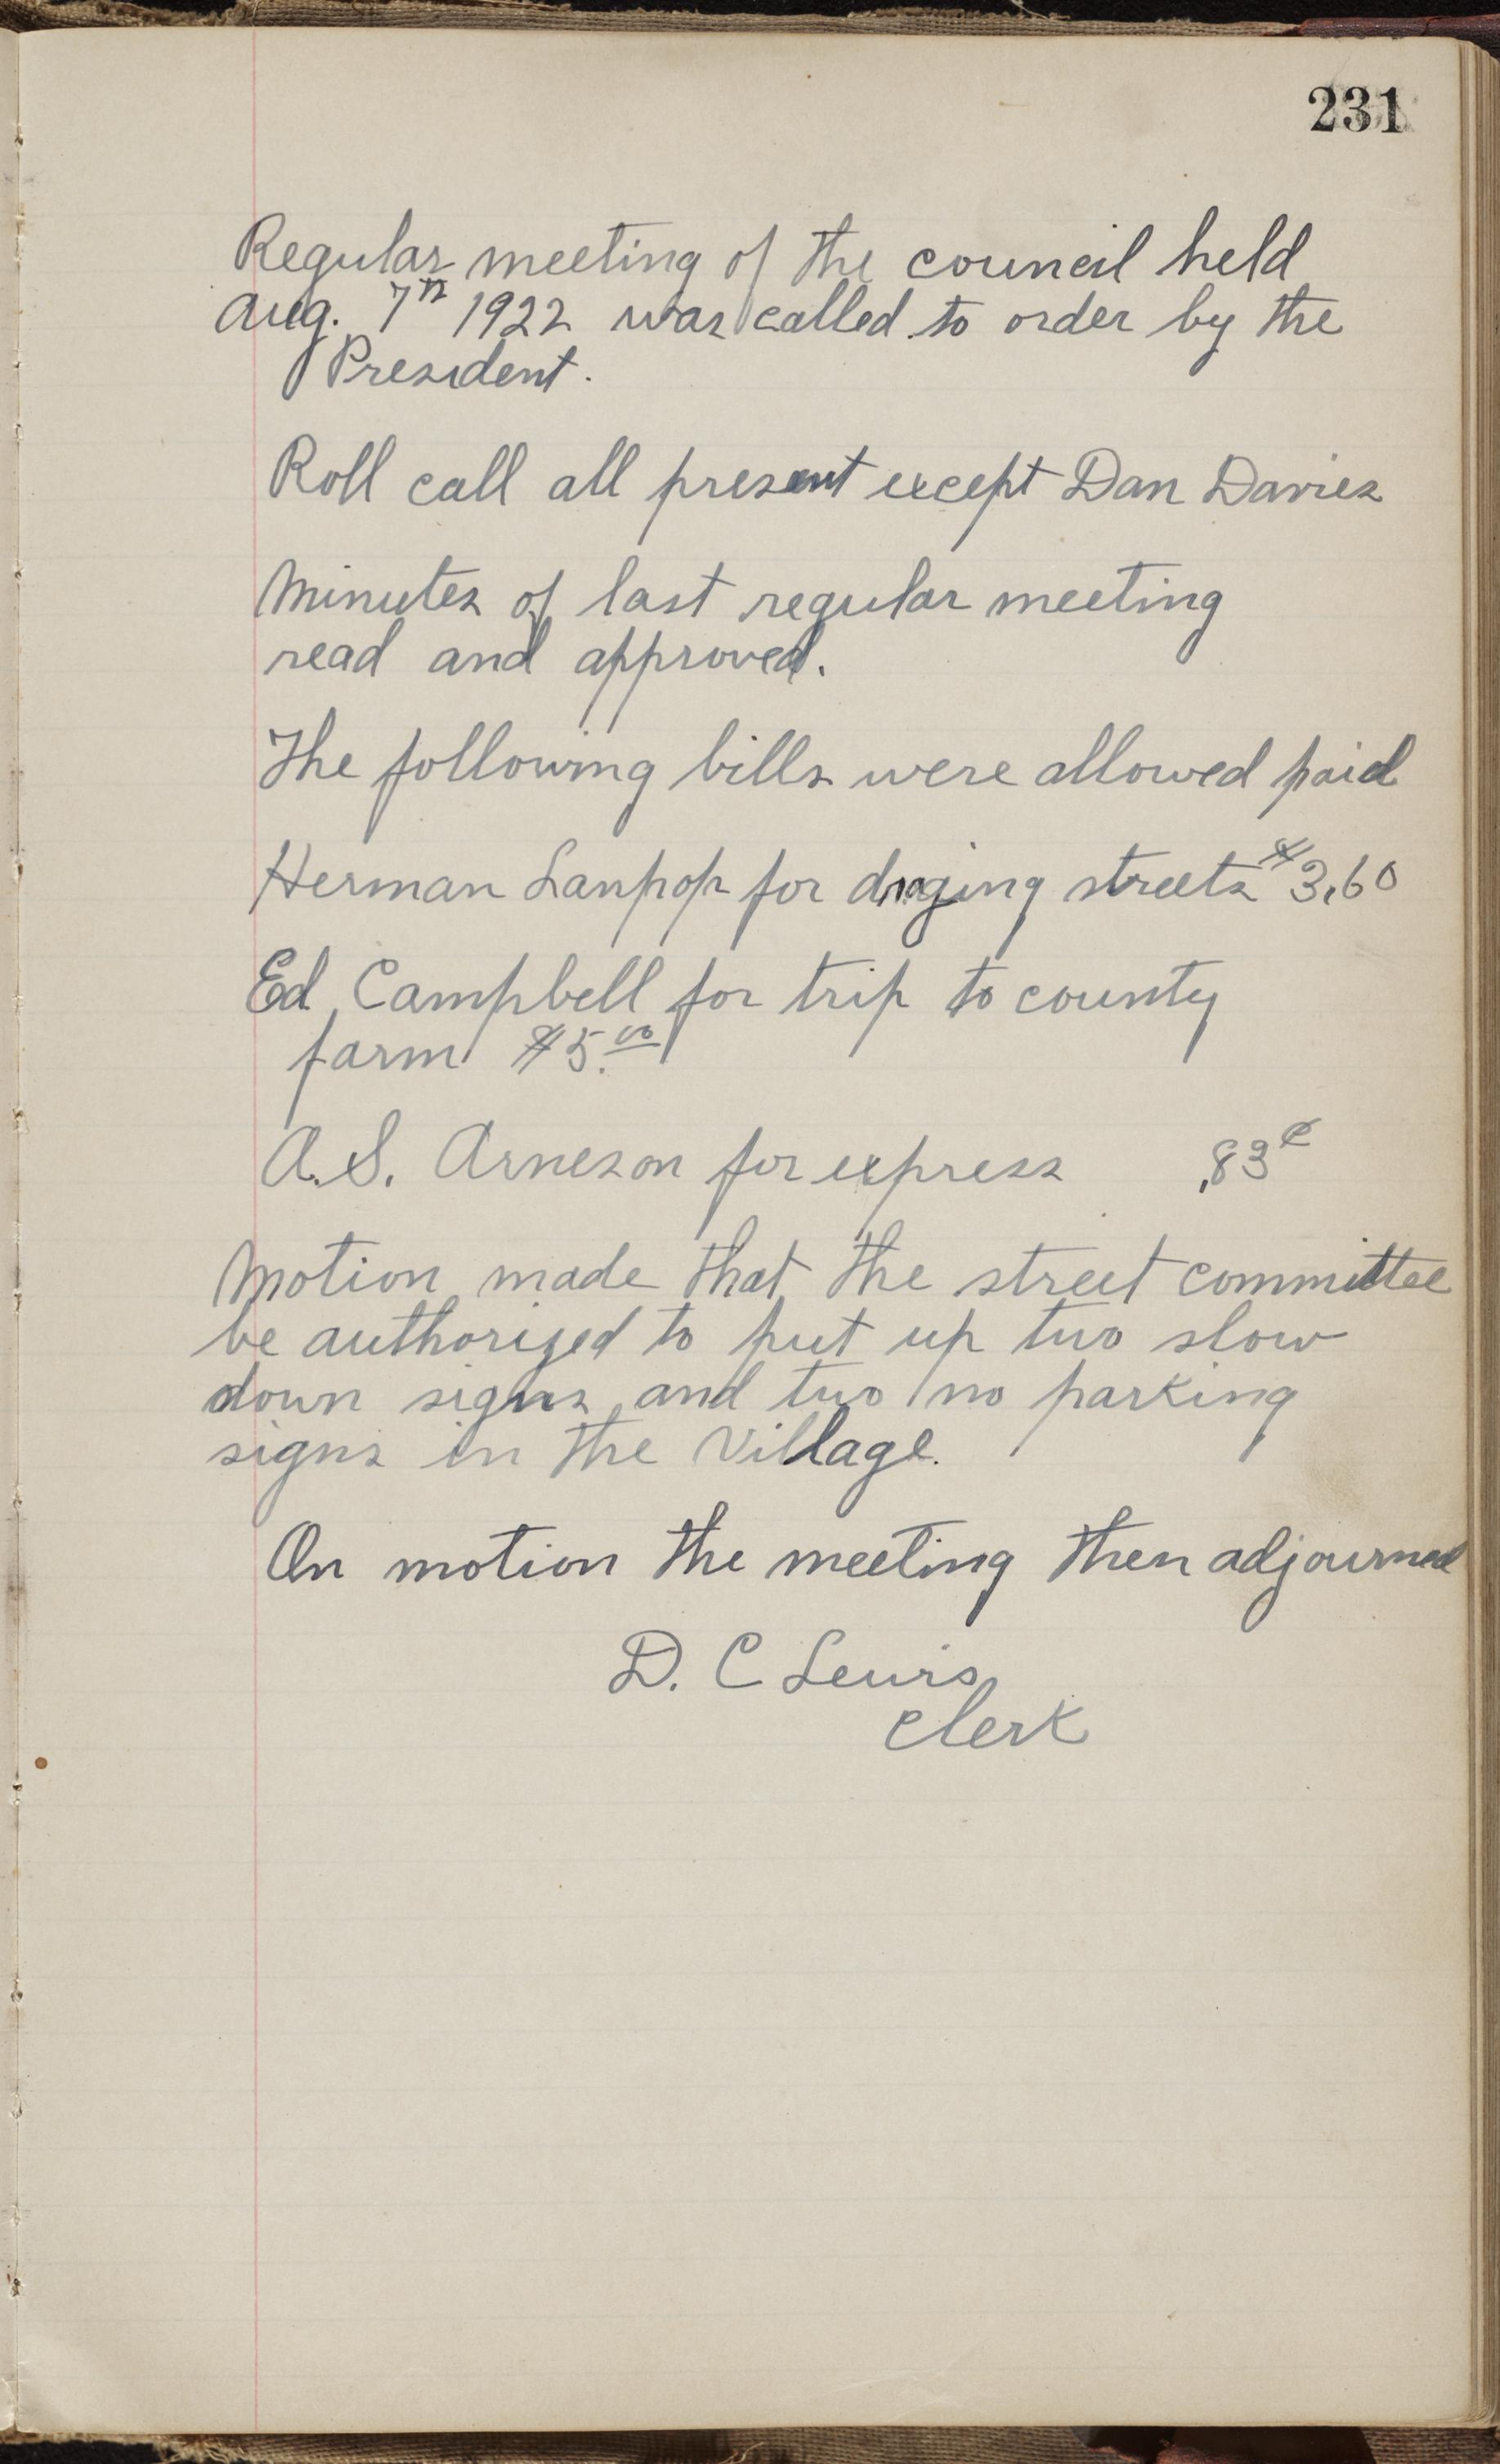 231
Regular meeting of the council held
Aug. 7th 1922 was called to order by the
President.
Roll call all present except Dan Davies
Minutes of last regular meeting
read and approved.
The following bills were allowed paid
Herman Lanpop for draging streets $3.60
Ed Campbell for trip to county
farm $5.00
A.S. Arneson for express .83¢
Motion made that the street committee
be authorized to put up two slow
down signs and two no parking
signs in the Village.
On motion the meeting then adjourned
D. C Lewis
Clerk